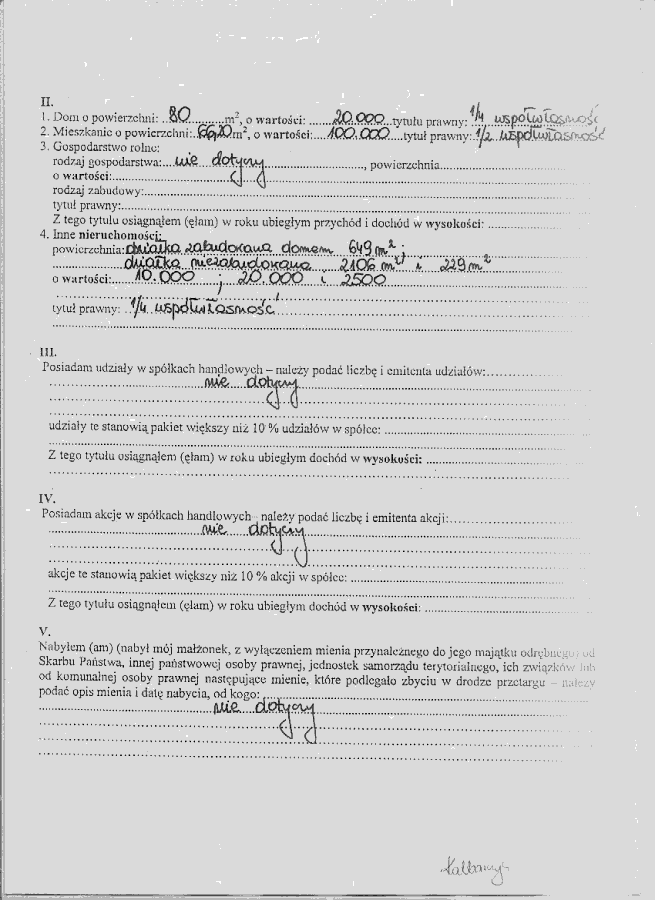 II.
1. Dom o powierzchni: ..80.........m², o wartości: .......20.000...tytułu prawny: 1/4 współwłasność
2. Mieszkanie o powierzchni:..66,20m², o wartości:....100.000....tytuł prawny:..1/2 współwłasność
3. Gospodarstwo rolne:
rodzaj gospodarstwa:....nie dotyczy............................, powierzchnia...............................
o wartości:..............................
rodzaj zabudowy:..............................
tytuł prawny:..............................
Z tego tytułu osiągnąłem (ęłam) w roku ubiegłym przychód i dochód w wysokości: ..............................
4. Inne nieruchomości:
powierzchnia:działka zabudowana domem 649 m² ;
działka niezabudowana 2106 m² i 229 m²
o wartości:......10.000 ; 20.000 i 2500
tytuł prawny: ..1/4 współwłasność
III.
Posiadam udziały w spółkach handlowych – należy podać liczbę i emitenta udziałów:..............................
nie dotyczy
udziały te stanowią pakiet większy niż 10 % udziałów w spółce: ..............................
Z tego tytułu osiągnąłem (ęłam) w roku ubiegłym dochód w wysokości: ..............................
IV.
Posiadam akcje w spółkach handlowych – należy podać liczbę i emitenta akcji:..............................
nie dotyczy
akcje te stanowią pakiet większy niż 10 % akcji w spółce: ..............................
Z tego tytułu osiągnąłem (ęłam) w roku ubiegłym dochód w wysokości: ..............................
V.
Nabyłem (am) (nabył mój małżonek, z wyłączeniem mienia przynależnego do jego majątku odrębnego) od
Skarbu Państwa, innej państwowej osoby prawnej, jednostek samorządu terytorialnego, ich związków lub
od komunalnej osoby prawnej następujące mienie, które podlegało zbyciu w drodze przetargu – należy
podać opis mienia i datę nabycia, od kogo: ..............................
nie dotyczy